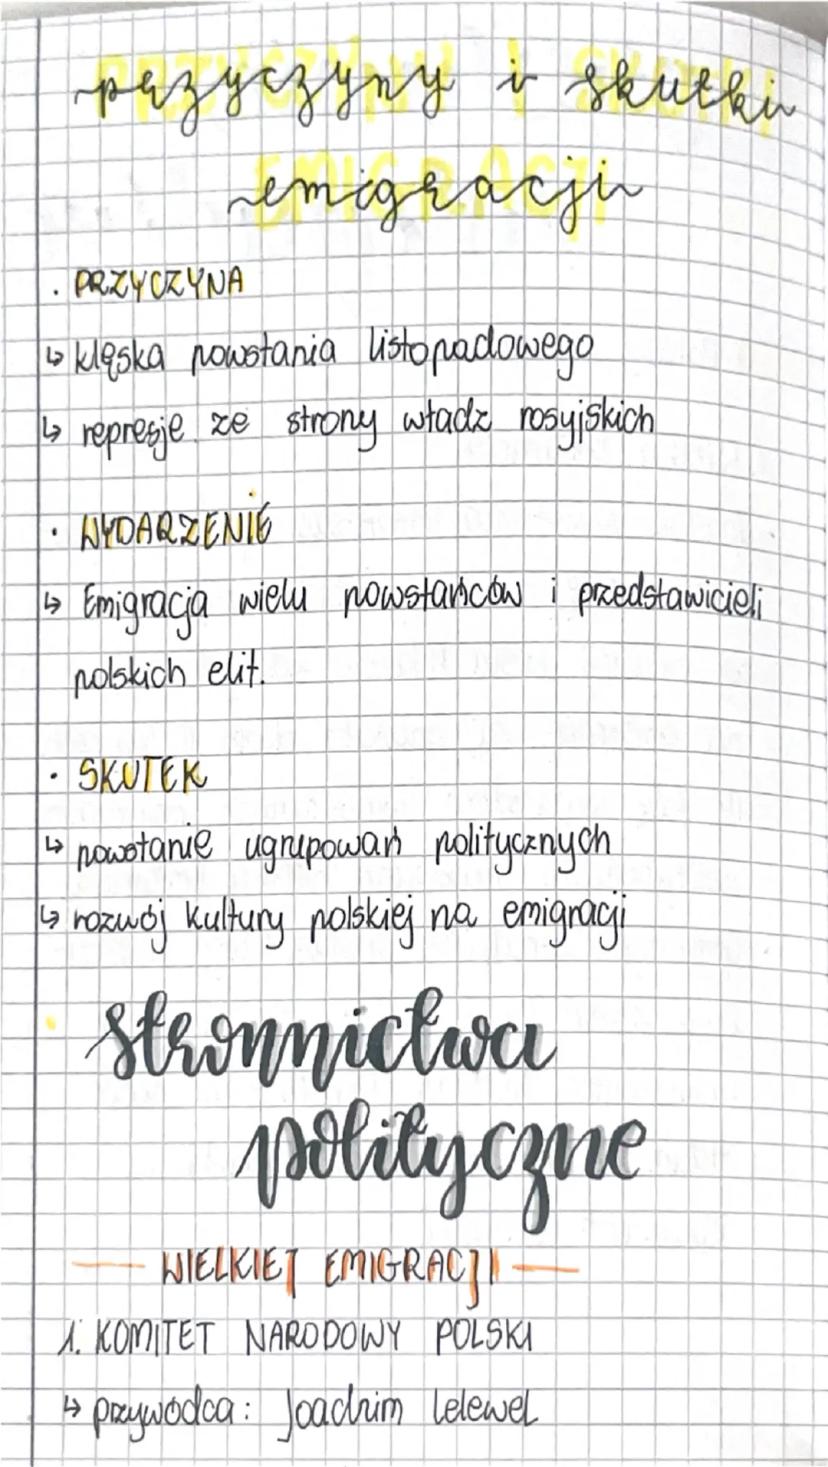 przyczyny i skutki
emigracji
· PRZYCZYNA
↳ klęska powstania listopadowego
↳ represje ze strony władz rosyjskich
· WYDARZENIE
↳ Emigracja wielu powstańców i przedstawicieli
polskich elit.
· SKUTEK
↳ powstanie ugrupowań politycznych
↳ rozwój kultury polskiej na emigracji
stronnictwa
polityczne
— WIELKIEJ EMIGRACJI —
1. KOMITET NARODOWY POLSKI
↳ przywódca: Joachim Lelewel